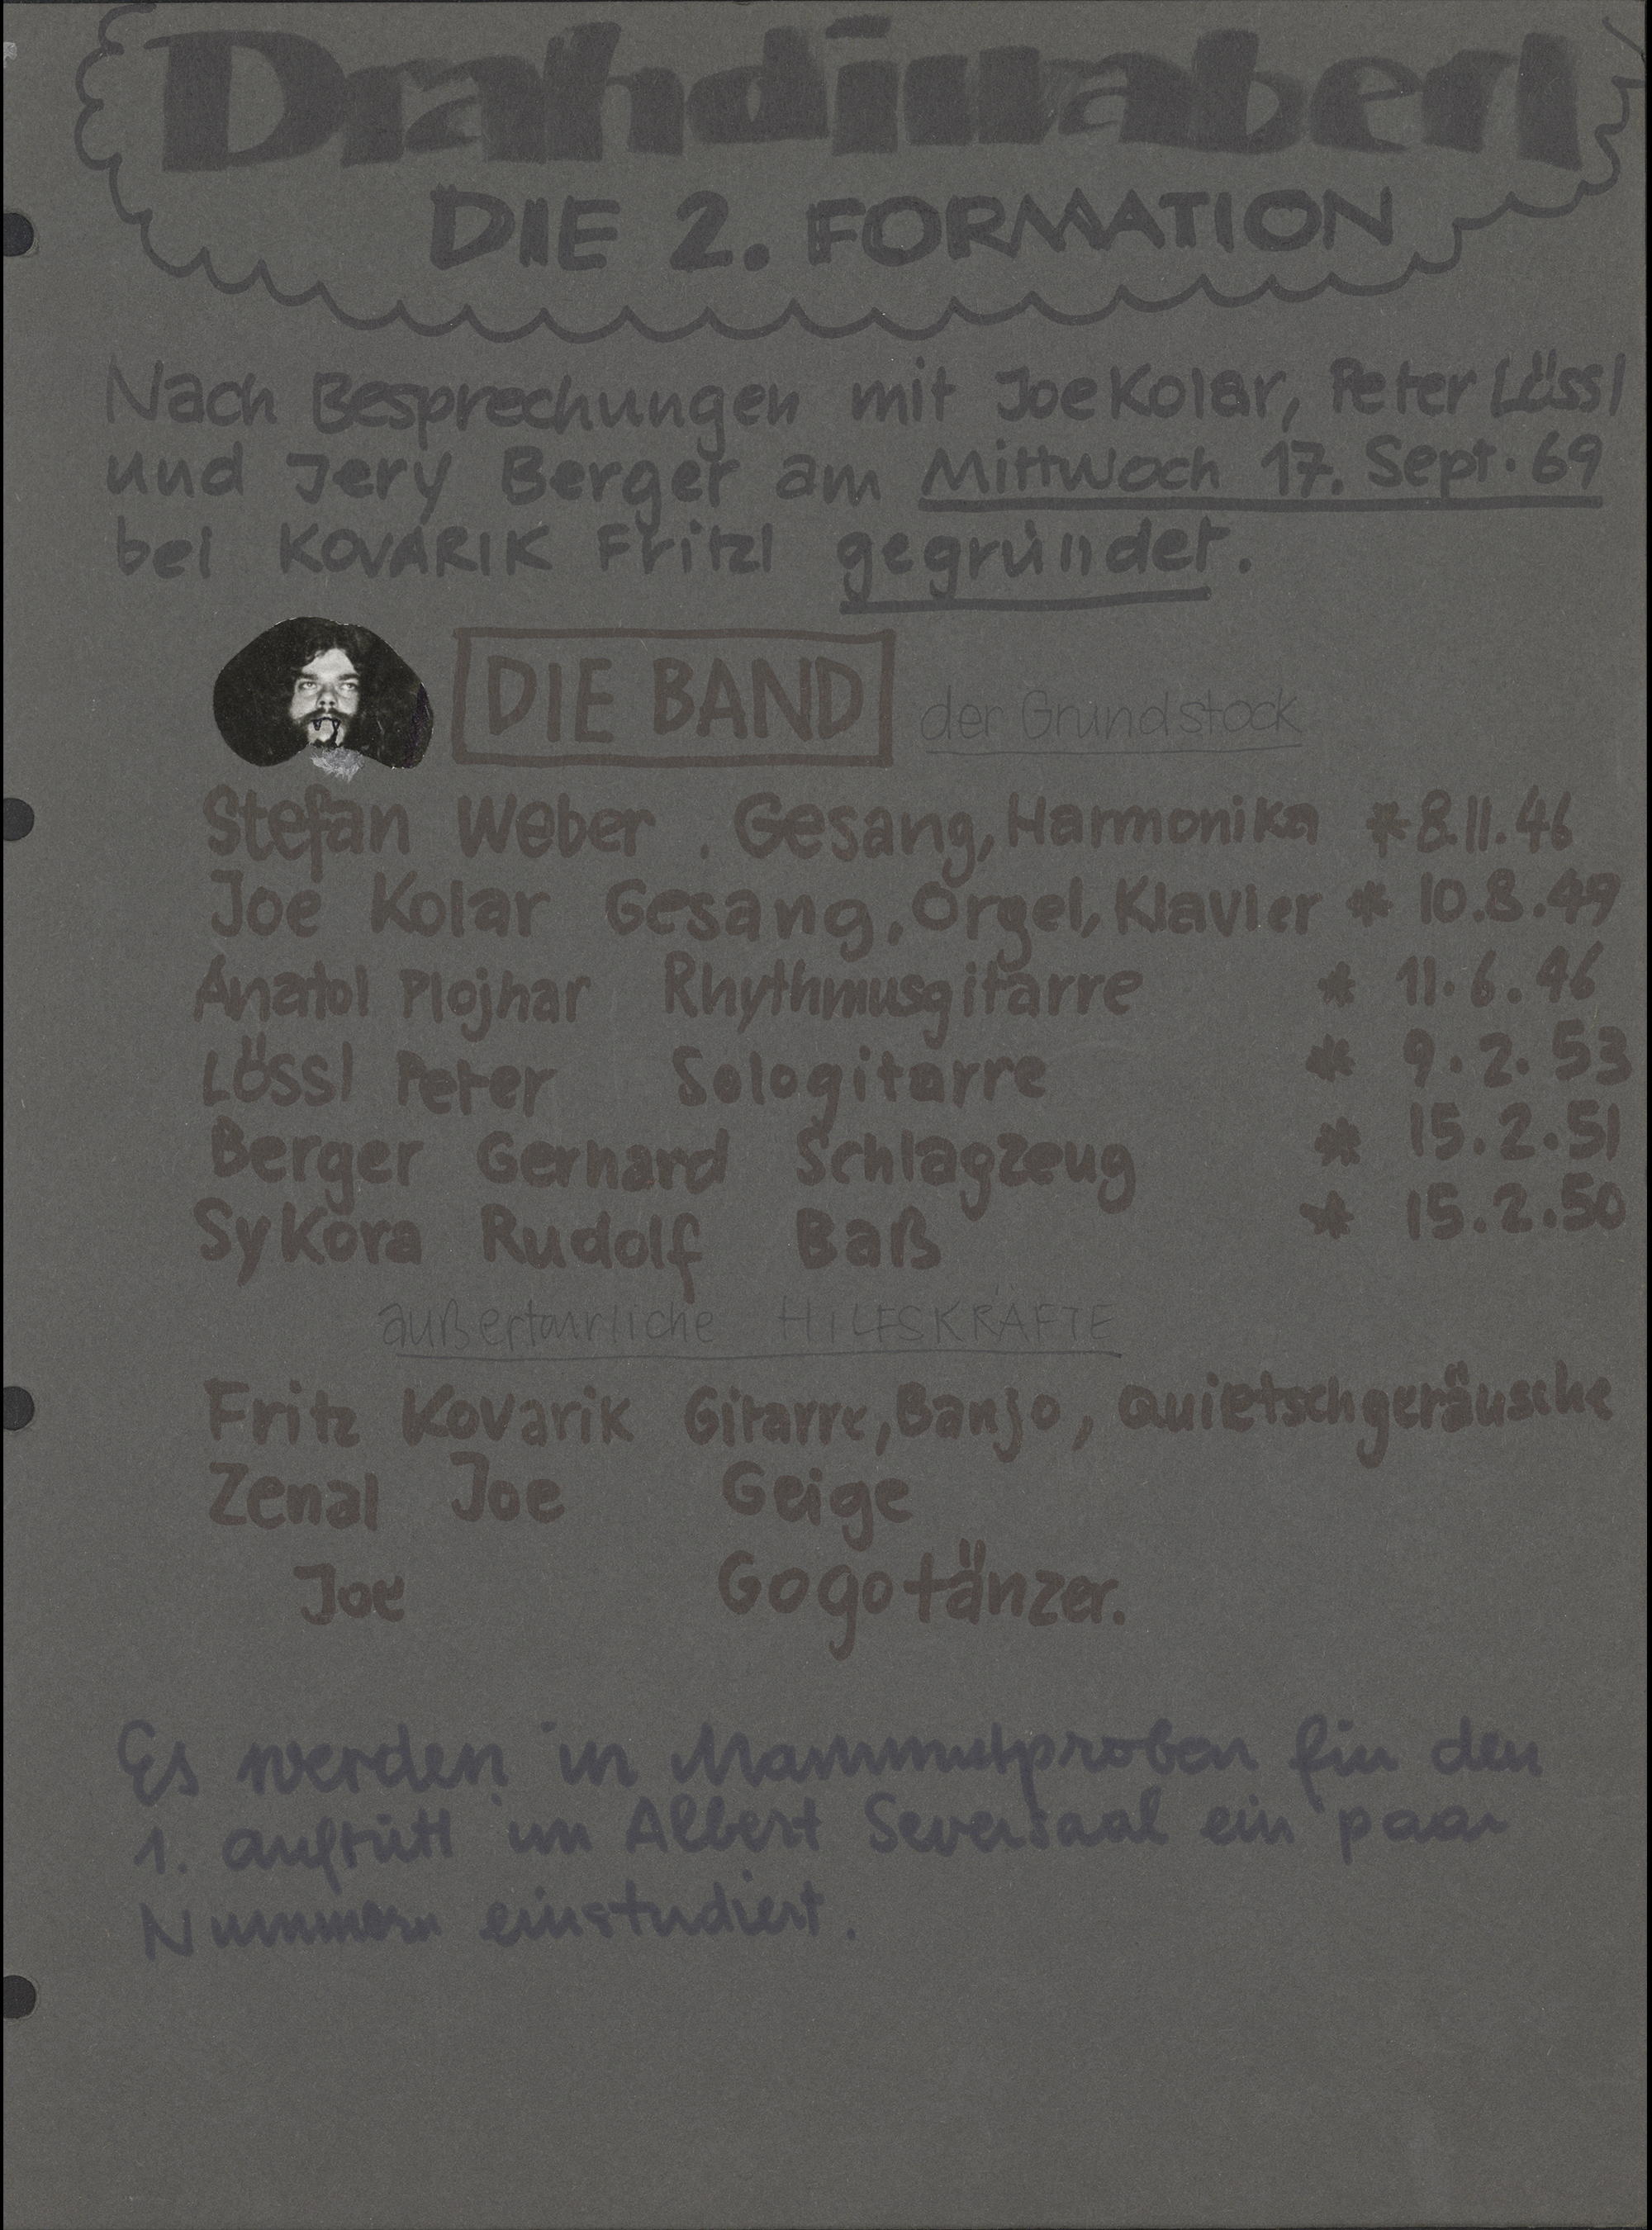 Drahdiwaberl
DIE 2. FORMATION
Nach Besprechungen mit Joe Kolar, Peter Lössl
und Jery Berger am Mittwoch 17. Sept. 69
bei KOVARIK Fritzl gegründet.
DIE BAND der Grundstock
Stefan Weber. Gesang, Harmonika * 8.11.46
Joe Kolar Gesang, Orgel, Klavier * 10.8.49
Anatol Plojhar Rhythmusgitarre * 11.6.46
Lössl Peter Sologitarre * 9.2.53
Berger Gerhard Schlagzeug * 15.2.51
Sykora Rudolf Baß * 15.2.50
außertourliche HILFSKRÄFTE
Fritz Kovarik Gitarre, Banjo, Quietschgeräusche
Zenal Joe Geige
Joe Gogotänzer.
Es werden in Mammutproben für den
1. Auftritt im Albert Seversaal ein paar
Nummern einstudiert.